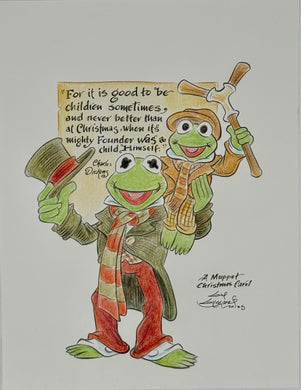 "For it is good to be
children sometimes,
and never better than
at Christmas, when its
mighty Founder was a
child Himself."
Charles
Dickens
A Muppet
Christmas Carol